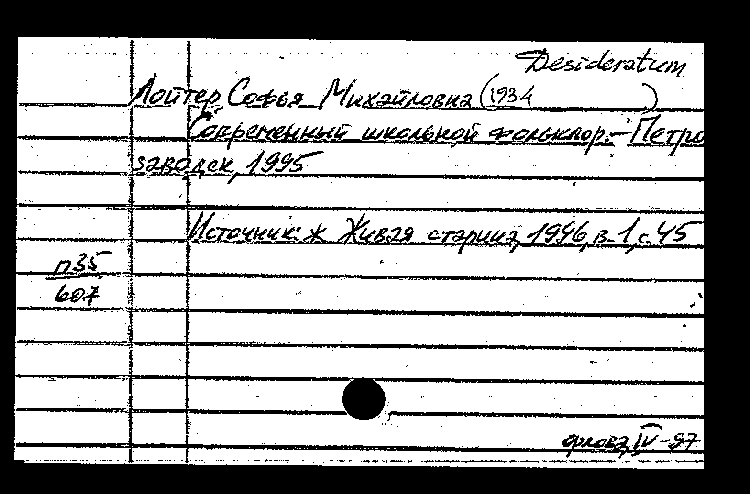 Desideratum
Лойтер Софья Михайловна (1934 )
Современный школьной фольклор. - Петро
заводск, 1995
Источник: ж Живая старина, 1996, в. 1, с. 45
п35
607
IV-97